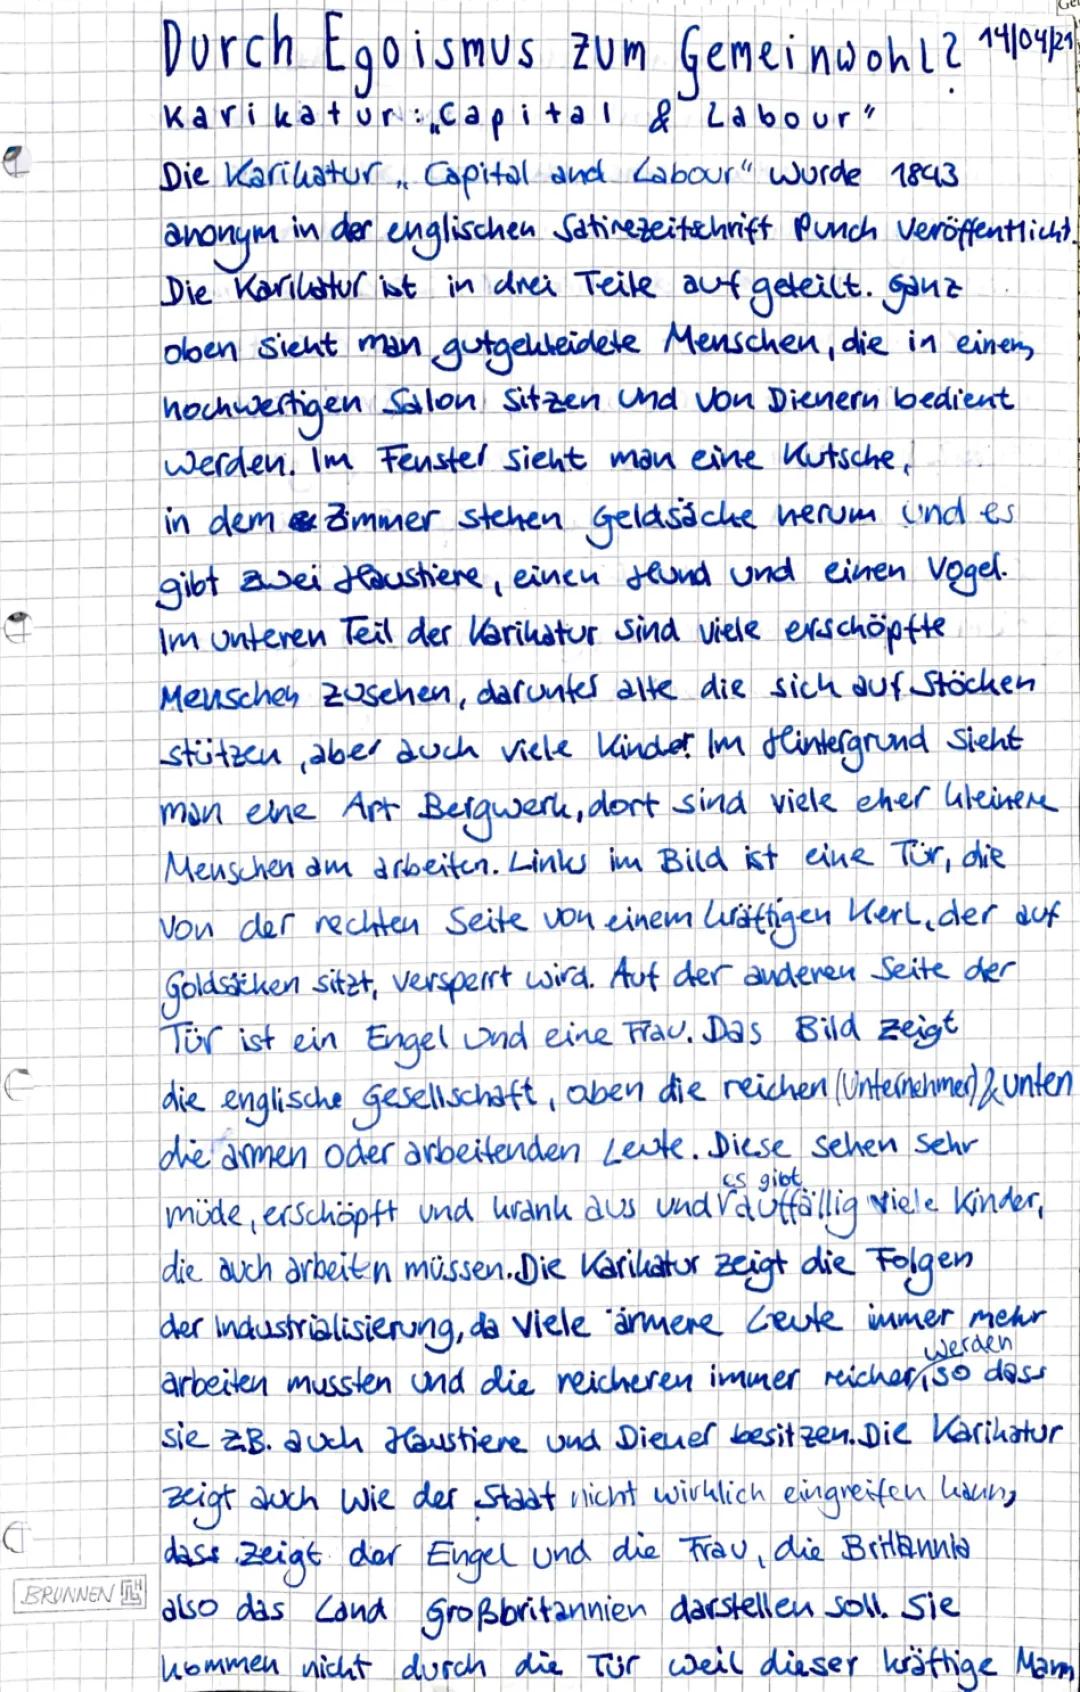 Durch Egoismus zum Gemeinwohl? 14/04/21
Karikatur: „Capital & Labour"
Die Karikatur „Capital and Labour" wurde 1843
anonym in der englischen Satirezeitschrift Punch veröffentlicht.
Die Karikatur ist in drei Teile aufgeteilt. Ganz
oben sieht man gutgekleidete Menschen, die in einem
hochwertigen Salon sitzen und von Dienern bedient
werden. Im Fenster sieht man eine Kutsche,
in dem Zimmer stehen Geldsäcke herum und es
gibt zwei Haustiere, einen Hund und einen Vogel.
Im unteren Teil der Karikatur sind viele erschöpfte
Menschen zusehen, darunter alte die sich auf Stöcken
stützen, aber auch viele Kinder. Im Hintergrund sieht
man eine Art Bergwerk, dort sind viele eher kleinere
Menschen am arbeiten. Links im Bild ist eine Tür, die
von der rechten Seite von einem kräftigen Kerl, der auf
Goldsäcken sitzt, versperrt wird. Auf der anderen Seite der
Tür ist ein Engel und eine Frau. Das Bild zeigt
die englische Gesellschaft, oben die reichen (Unternehmer) & unten
die armen oder arbeitenden Leute. Diese sehen sehr
es gibt
müde, erschöpft und krank aus und auffällig viele Kinder,
die auch arbeiten müssen. Die Karikatur zeigt die Folgen
der Industrialisierung, da viele ärmere Leute immer mehr
werden
arbeiten mussten und die reicheren immer reicher, so dass
sie z.B. auch Haustiere und Diener besitzen. Die Karikatur
zeigt auch wie der Staat nicht wirklich eingreifen kann,
dass zeigt der Engel und die Frau, die Britannia
also das Land Großbritannien darstellen soll. Sie
kommen nicht durch die Tür weil dieser kräftige Mann
BRUNNEN